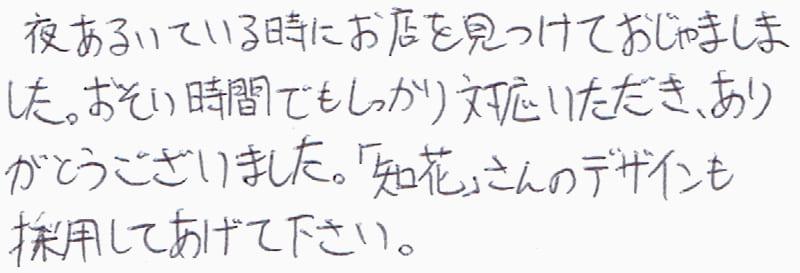 夜あるいている時にお店を見つけておじゃましま
した。おそい時間でもしっかり対応いただき、あり
がとうございました。「知花」さんのデザインも
採用してあげて下さい。